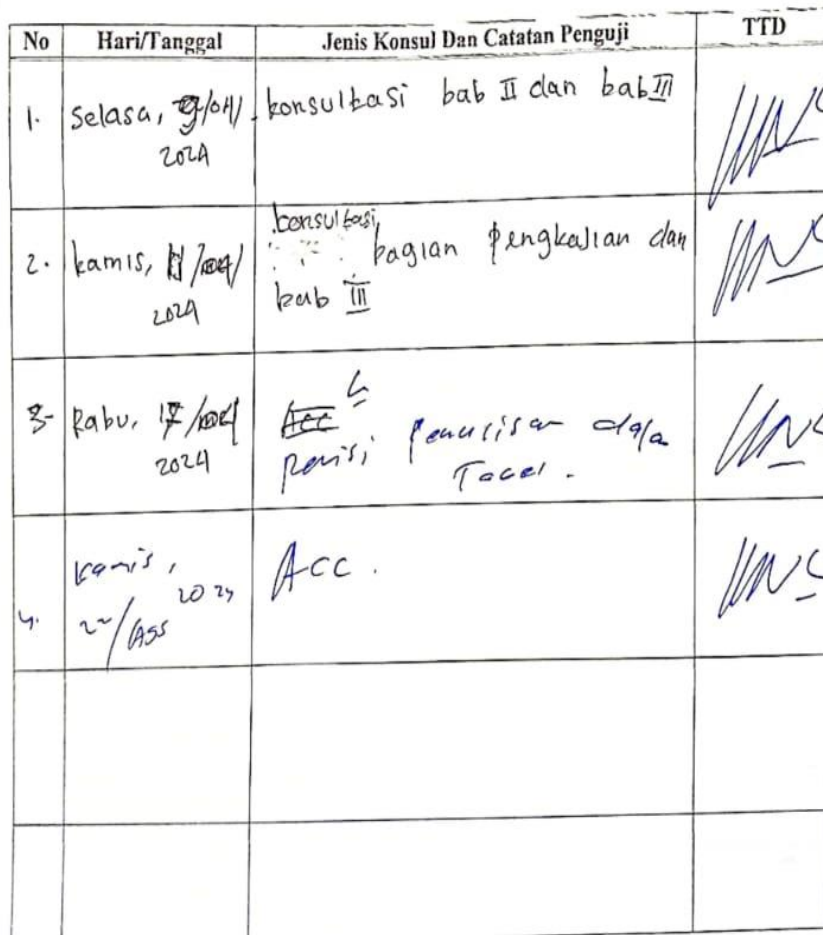 No Hari/Tanggal Jenis Konsul Dan Catatan Penguji TTD
1. Selasa, 9/04/ konsultasi bab II dan bab III
2024
konsultasi
2. kamis, 11/04/ bagian pengkajian dan
2024 bab III
3. Rabu, 17/04/
2024 Revisi penulisan data
Tabel.
4. Kamis, 22/Ags 2024 Acc.